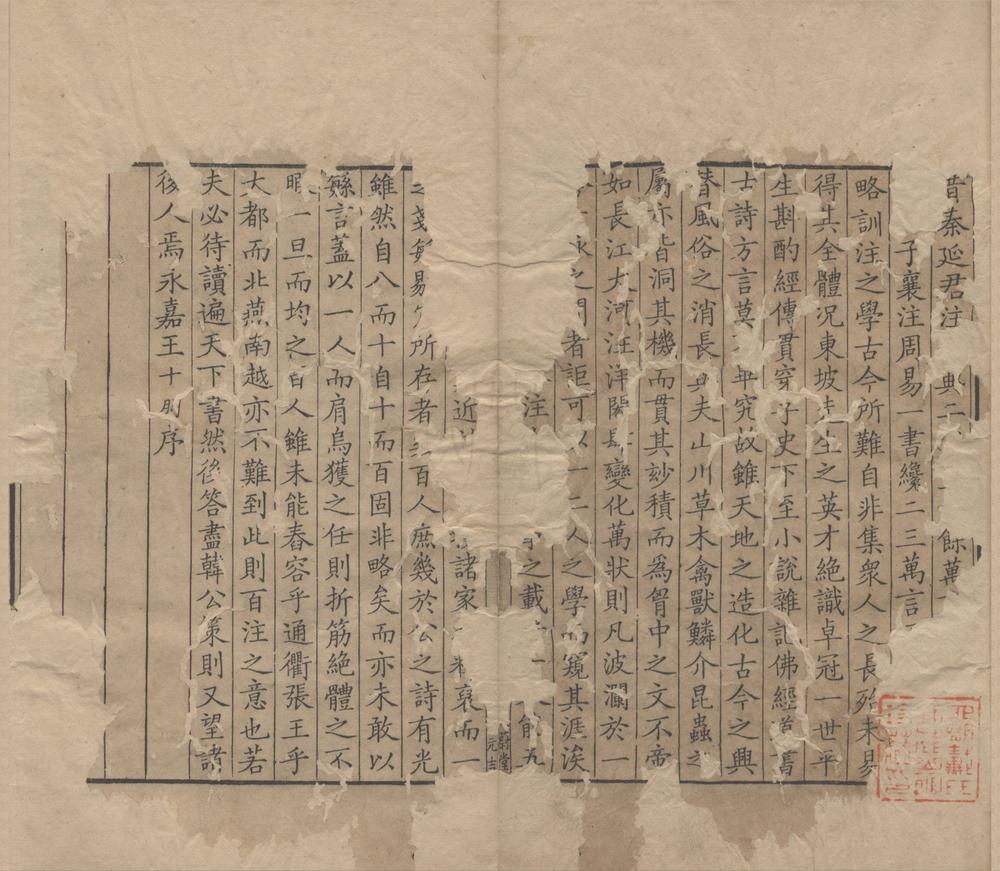 昔秦延君注典餘萬
子襄注周易一書纔二三萬言
略訓注之學古今所難自非集衆人之長殆未易
得其全體况東坡先生之英才絕識卓冠一世平
生斟酌經傳貫穿子史下至小說雜記佛經道書
古詩方言莫畢究故雖天地之造化古今之興
替風俗之消長與夫山川草木禽獸鱗介昆蟲之
屬亦皆洞其機而貫其妙積而爲胷中之文不啻
如長江大河汪洋閎肆變化萬狀則凡波瀾於一
詠之間者詎可以一二人之學而窺其涯涘
注之載前九
近諸家裒而一
所在者百人庶幾於公之詩有光
雖然自八而十自十而百固非略矣而亦未敢以
繇言蓋以一人而肩烏獲之任則折筋絕體之不
暇一旦而均之百人雖未能舂容乎通衢張王乎
大都而北燕南越亦不難到此則百注之意也若
夫必待讀遍天下書然後答盡韓公策則又望諸
後人焉永嘉王十朋序
蔚堂
元吉